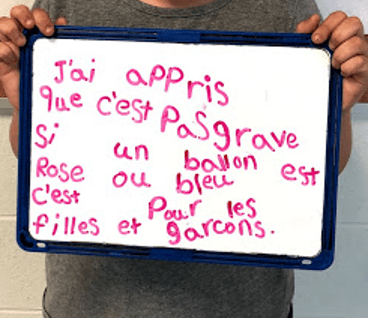 J'ai appris
que c'est Pas grave
Si un ballon est
Rose ou bleu
C'est Pour les
filles et garcons.